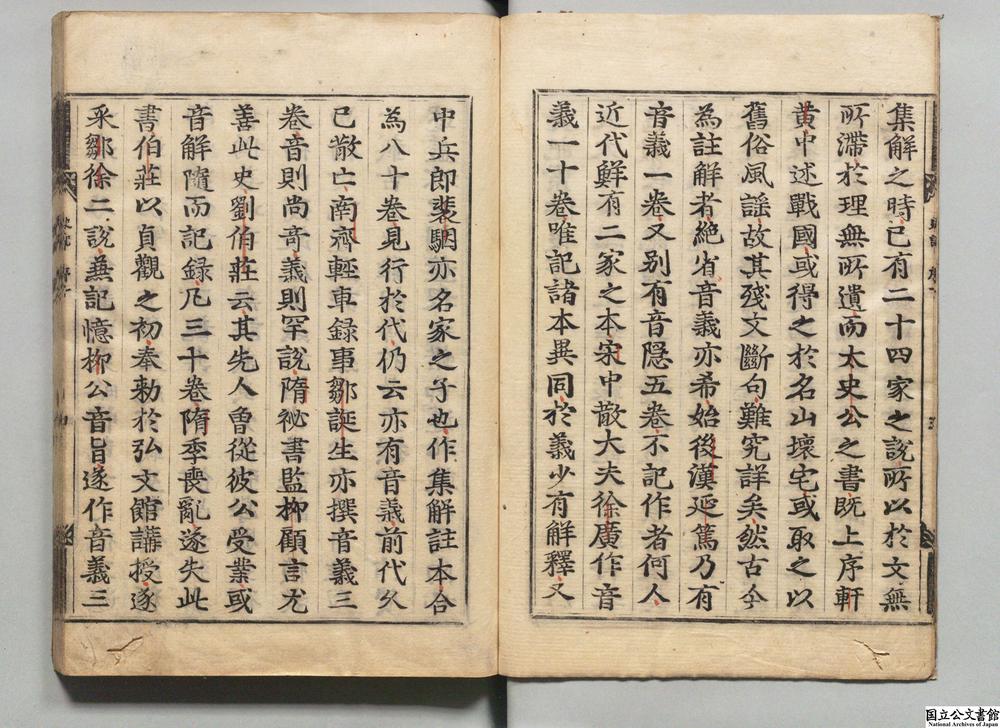 集解之時已有二十四家之說所以於文無
所滯於理無所遺而太史公之書既上序軒
黄中述戰國或得之於名山壞宅或取之以
舊俗風謡故其殘文斷句難究詳矣然古今
為註解者絶省音義亦希始後漢延篤乃有
音義一卷又别有音隠五卷不記作者何人
近代鮮有二家之本宋中散大夫徐廣作音
義一十卷唯記諸本異同於義少有解釋又
中兵郎裴駰亦名家之子也作集解註本合
為八十卷見行於代仍云亦有音義前代久
已散亡南齊輕車録事鄒誕生亦撰音義三
卷音則尚竒義則罕說隋祕書監柳顧言尤
善此史劉伯莊云其先人曽從彼公受業或
音解隨而記録凡三十卷隋季喪亂遂失此
書伯莊以貞觀之初奉勅於弘文館講授遂
采鄒徐二說兼記憶柳公音旨遂作音義三
国立公文書館
National Archives of Japan